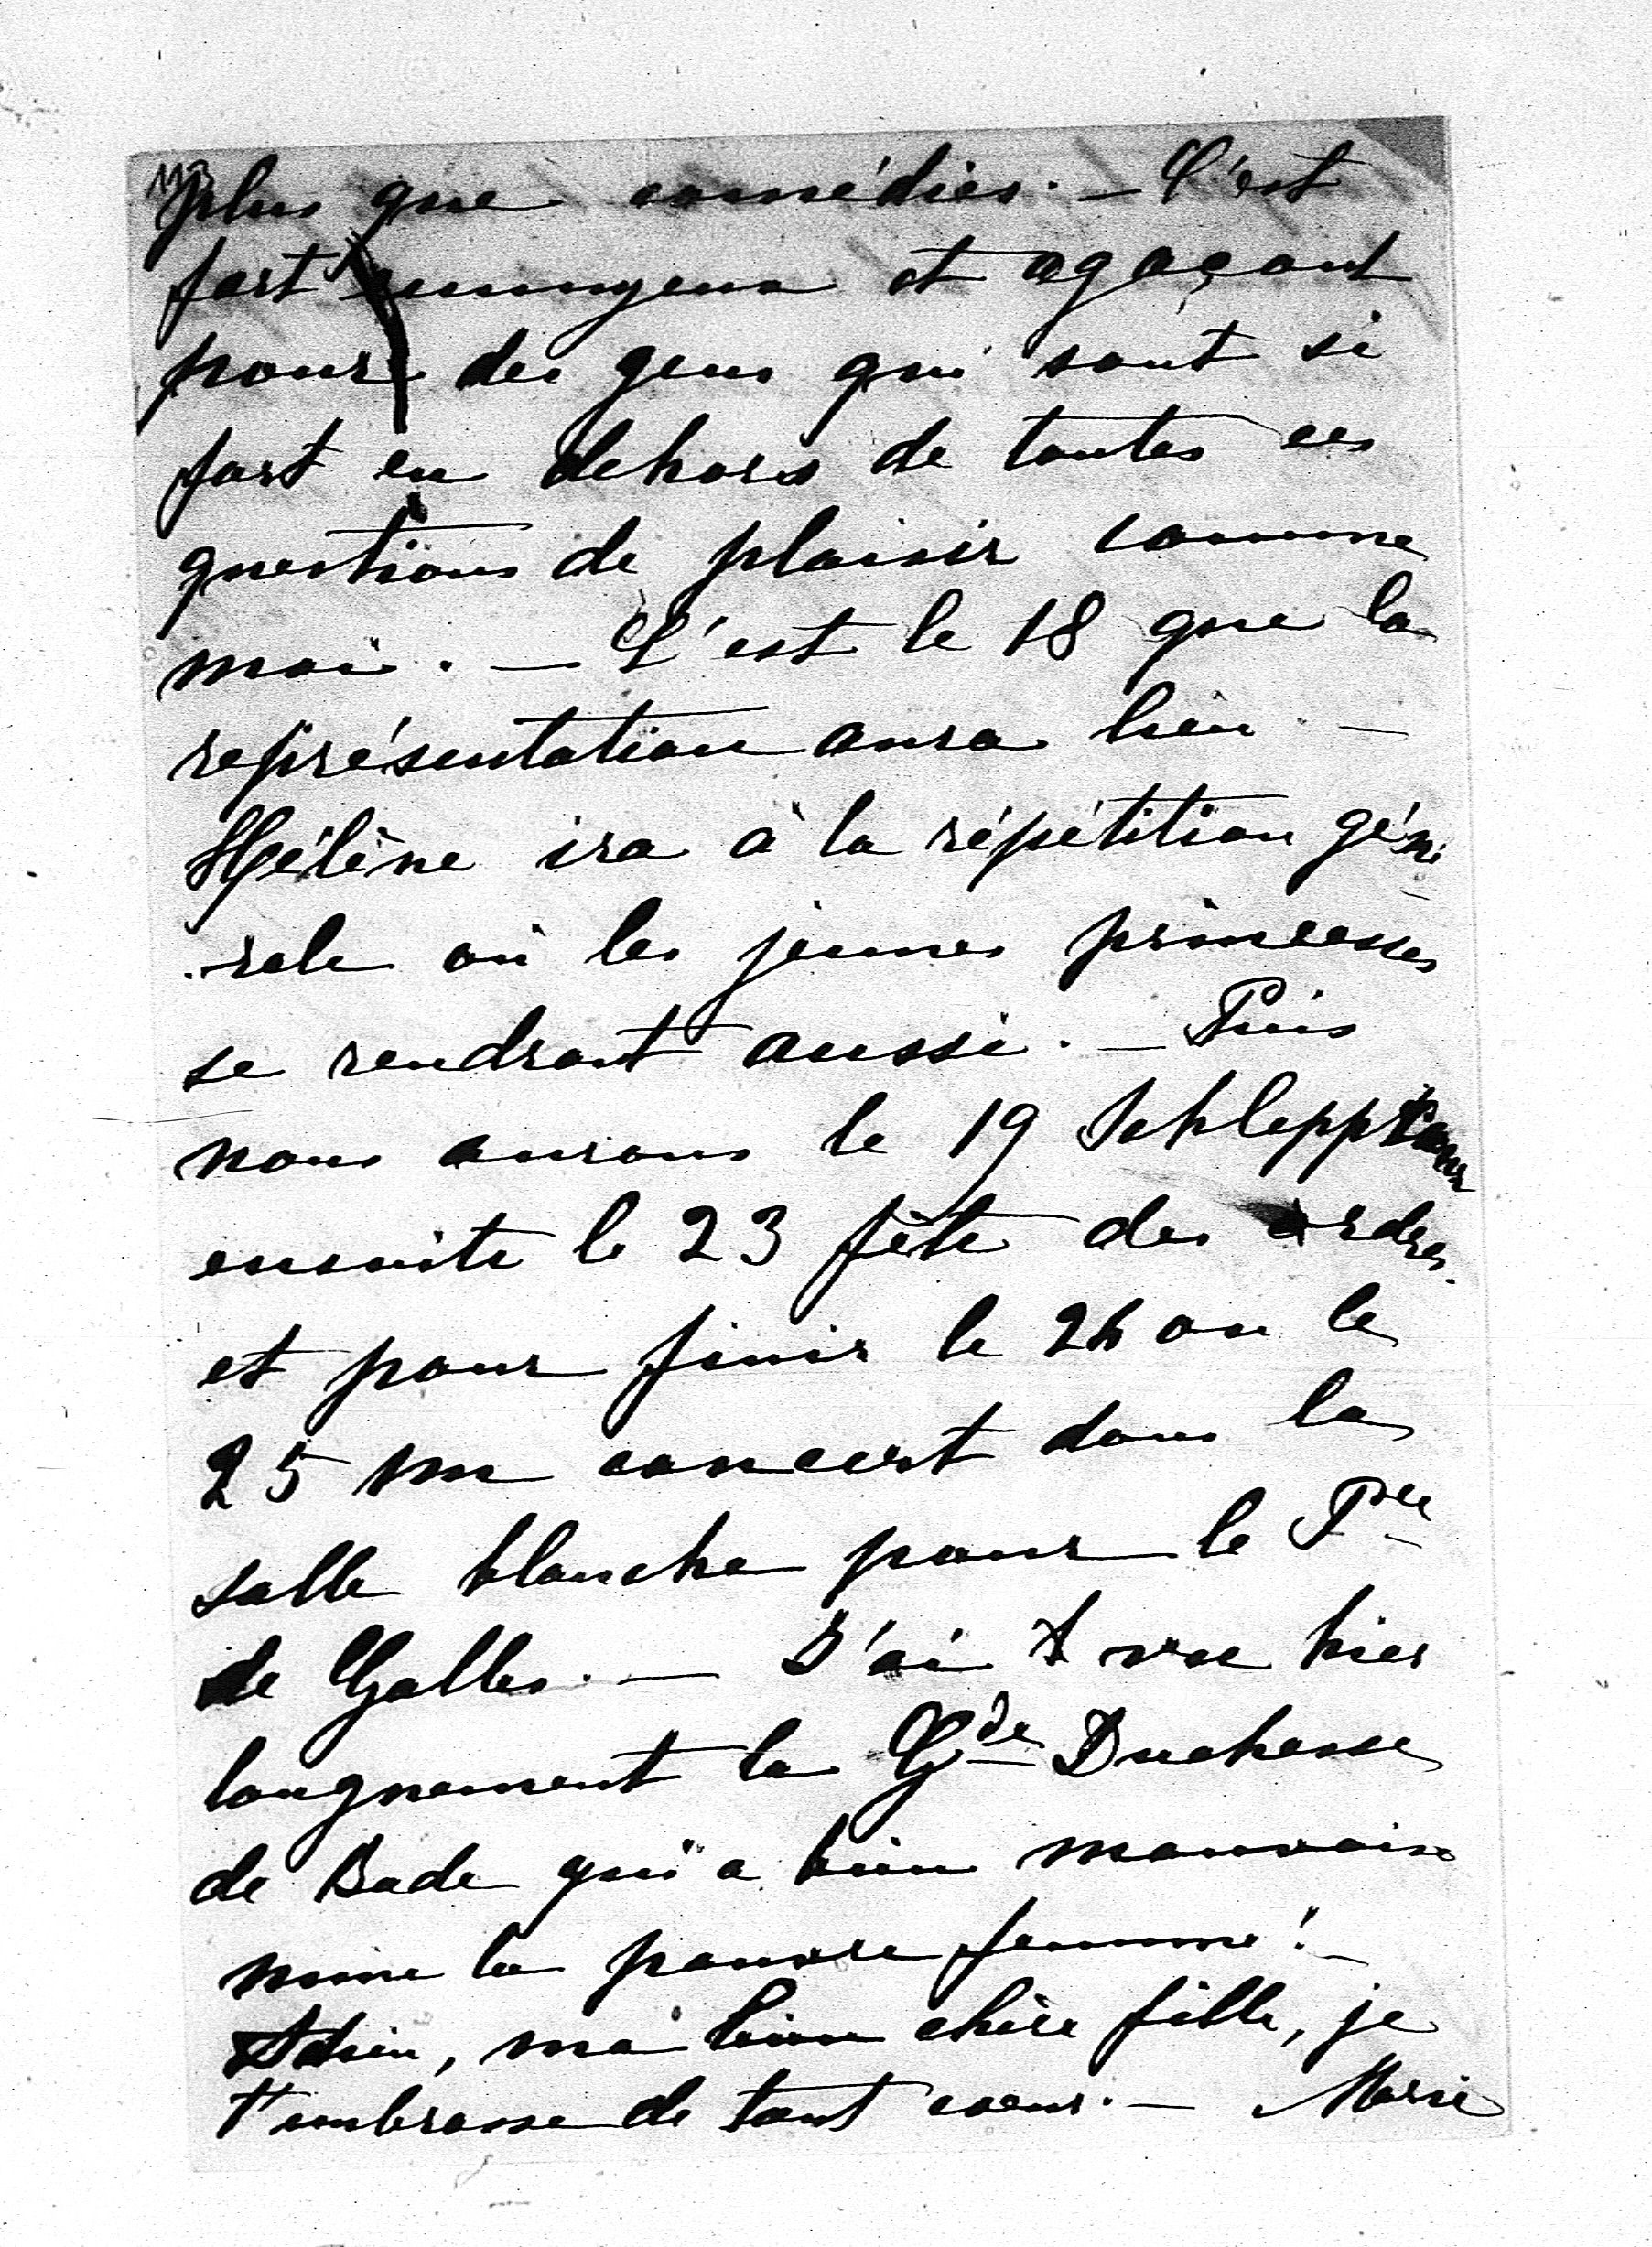 plus que comédies. — C'est
fort ennuyeux et agaçant
pour des gens qui sont si
fort en dehors de toutes ces
questions de plaisir comme
moi. — C'est le 18 que la
représentation aura lieu. —
Hélène ira à la répétition géné
-rale où les jeunes princesses
se rendront aussi. — Puis
nous aurons le 19 Schleppcour
ensuite le 23 fête des ordres.
et pour finir le 24 ou le
25 un concert dans la
salle blanche pour le Pce
de Galles. — J'ai vue hier
longuement la Gde Duchesse
de Bade qui a bien mauvaise
mine la pauvre femme! —
Adieu, ma bien chère fille, je
t'embrasse de tout coeur. — Marie